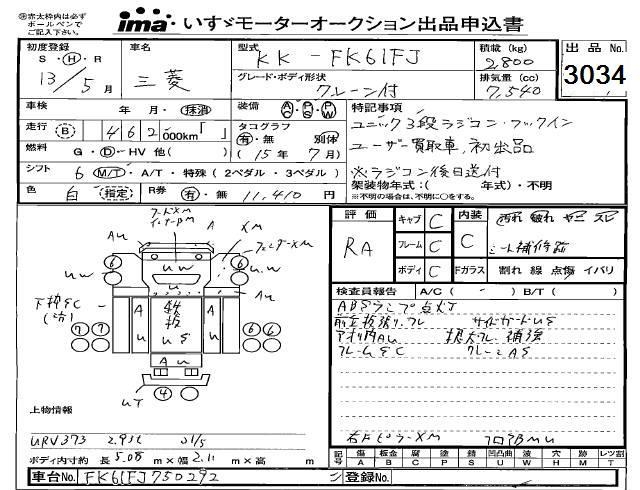 ㊟赤太枠内は必ず
ボールペンで
ご記入下さい。
ima いすゞモーターオークション出品申込書
初度登録
S・H・R
13年5月
車名
三菱
型式
KK-FK61FJ
グレード・ボディ形状
クレーン付
積載(kg)
2,800
排気量(cc)
7,540
出品No.
3034
車検 年 月・抹消
走行 B 4 6 2 ,000km「 」
燃料 G・D・HV 他( )
シフト 6 M/T・A/T・特殊(2ペダル・3ペダル)
色 白 (指定) R券 有・無 11,410円
装備 A/C P/S P/W
タコグラフ
有・無 別体
(15年 7月)
特記事項
ユニック3段ラジコン・フックイン
ユーザー買取車,初出品
※ラジコン後日送付
架装物年式:( 年式)・不明
※不明の場合は、不明に○をする。
評価 RA
キャブ C
フレーム C
ボディ C
内装 C
汚れ 破れ ヤニ スレ
シート補修跡
Fガラス 割れ 線 点傷 イバリ
検査員報告 A/C( - ) B/T( )
ABSランプ点灯
サイドガードUS
アオリ内AU
フレームSC クレーンAS
右Fピラー XM フロアBMU
フードXM
インナーBM
フェンダーXM
AU
A
XM
UW
下枠SC
鉄板
US
UT
6 6 6 6 7 7 6 6 4
上物情報
URV373 2.93t 01/5
ボディ内寸約 長 5.08 m×幅 2.11 m×高 m
記号 傷 A 板金 B 腐 C 塗 P 錆 S 凹凸曲 U 波 W 穴 H 跡 M レツ割 T
車台No. FK61FJ750292
登録No.